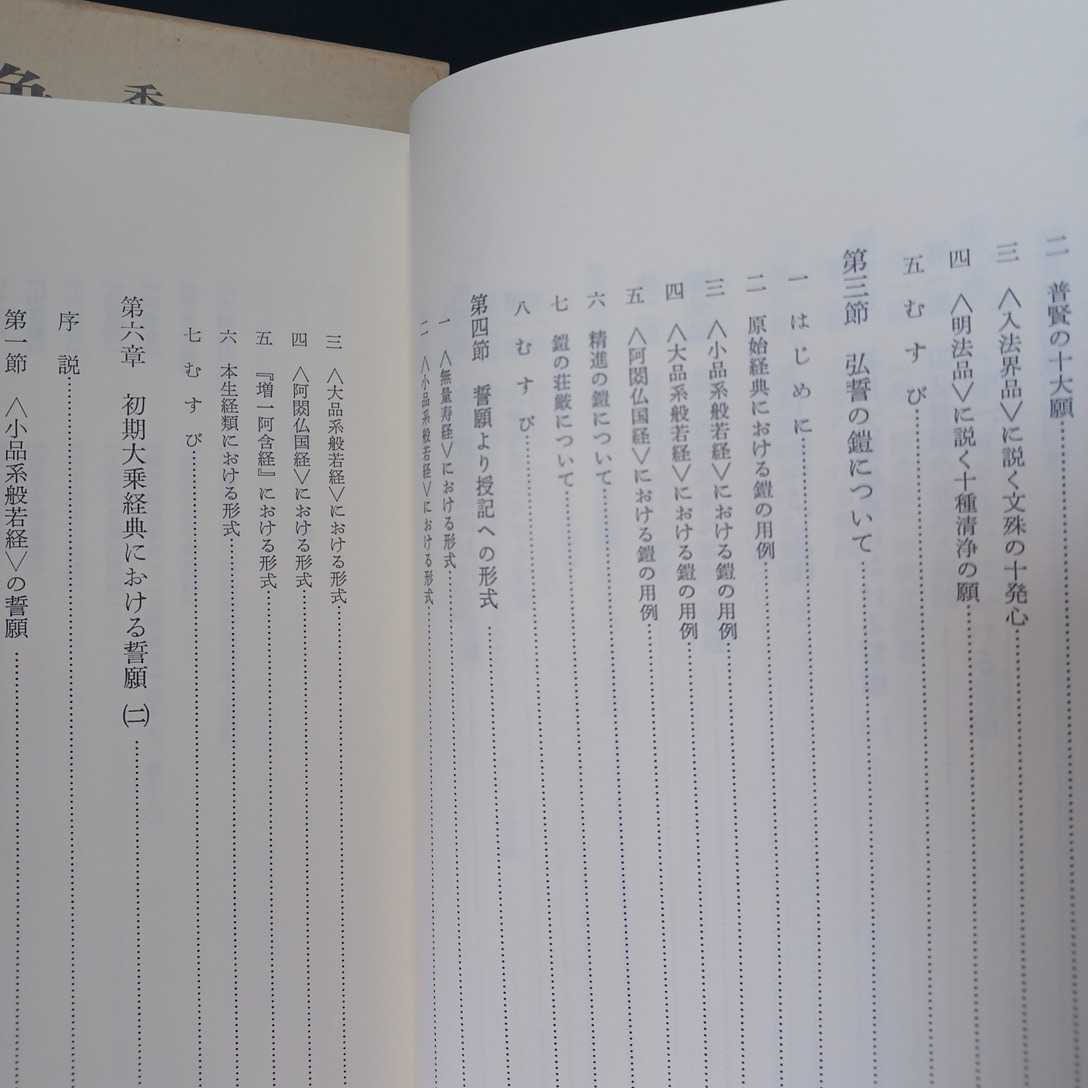 二 普賢の十大願
三 〈入法界品〉に説く文殊の十発心
四 〈明法品〉に説く十種清浄の願
五 むすび
第三節 弘誓の鎧について
一 はじめに
二 原始経典における鎧の用例
三 〈小品系般若経〉における鎧の用例
四 〈大品系般若経〉における鎧の用例
五 〈阿閦仏国経〉における鎧の用例
六 精進の鎧について
七 鎧の荘厳について
八 むすび
第四節 誓願より授記への形式
一 〈無量寿経〉における形式
二 〈小品系般若経〉における形式
三 〈大品系般若経〉における形式
四 〈阿閦仏国経〉における形式
五 『増一阿含経』における形式
六 本生経類における形式
七 むすび
第六章 初期大乗経典における誓願(二)
序説
第一節 〈小品系般若経〉の誓願